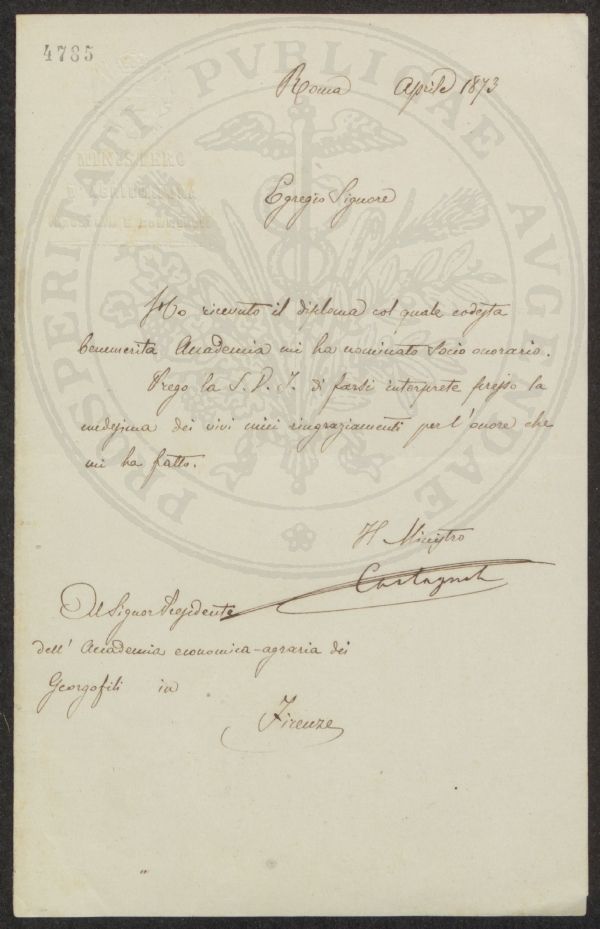 4785
Roma Aprile 1873
MINISTERO
D'AGRICOLTURA
INDUSTRIA E COMMERCIO
Egregio Signore
Ho ricevuto il diploma col quale codesta
benemerita Accademia mi ha nominato Socio onorario.
Prego la S. V. I. di farsi interprete presso la
medesima dei vivi miei ringraziamenti per l'onore che
mi ha fatto.
Il Ministro
Castagnola
Al Signor Presidente
dell' Accademia economica-agraria dei
Georgofili in
Firenze
PROSPERITATI PVBLICAE AVGENDAE